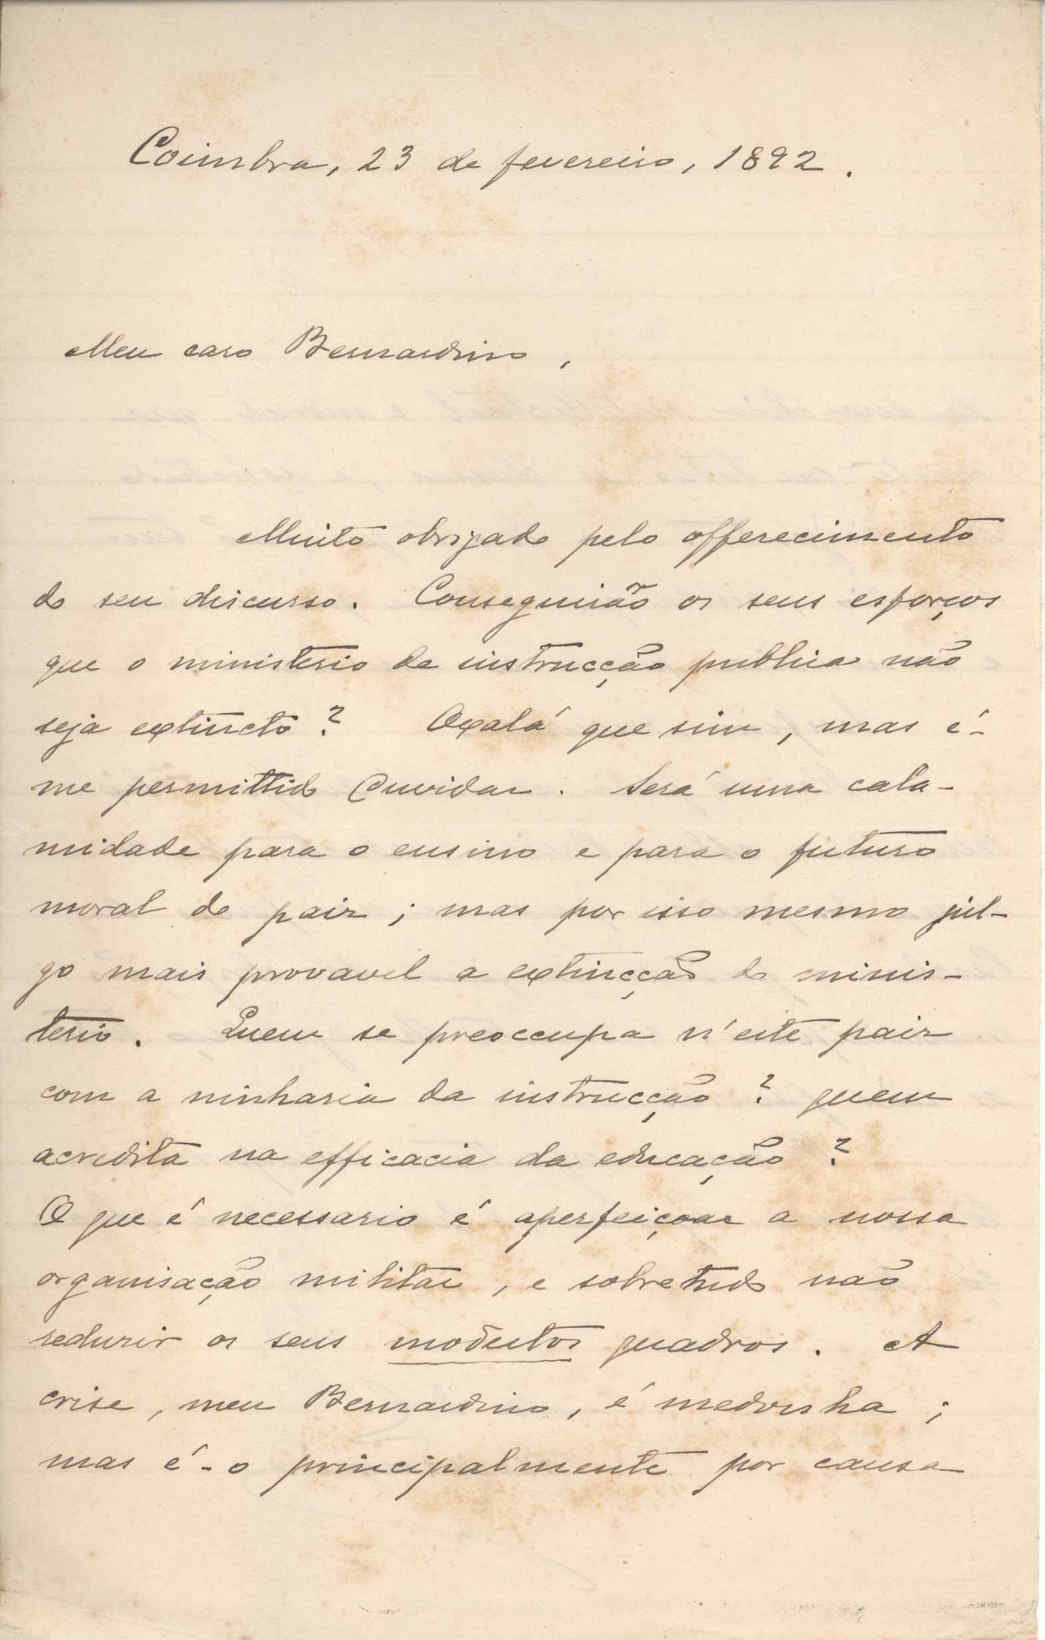 Coimbra, 23 de fevereiro, 1892.
Meu caro Bernardino,
Muito obrigado pelo offerecimento
do seu discurso. Conseguirão os seus esforços
que o ministerio da instrucção publica não
seja extincto? Oxalá que sim, mas é-
me permittido duvidar. Será uma cala-
midade para o ensino e para o futuro
moral do paiz; mas por isso mesmo jul-
go mais provavel a extincção do minis-
terio. Quem se preoccupa n'este paiz
com a ninharia da instrucção? quem
acredita na efficacia da educação?
O que é necessario é aperfeiçoar a nossa
organisação militar, e sobretudo não
reduzir os seus modestos quadros. A
crise, meu Bernardino, é medonha;
mas é-o principalmente por causa